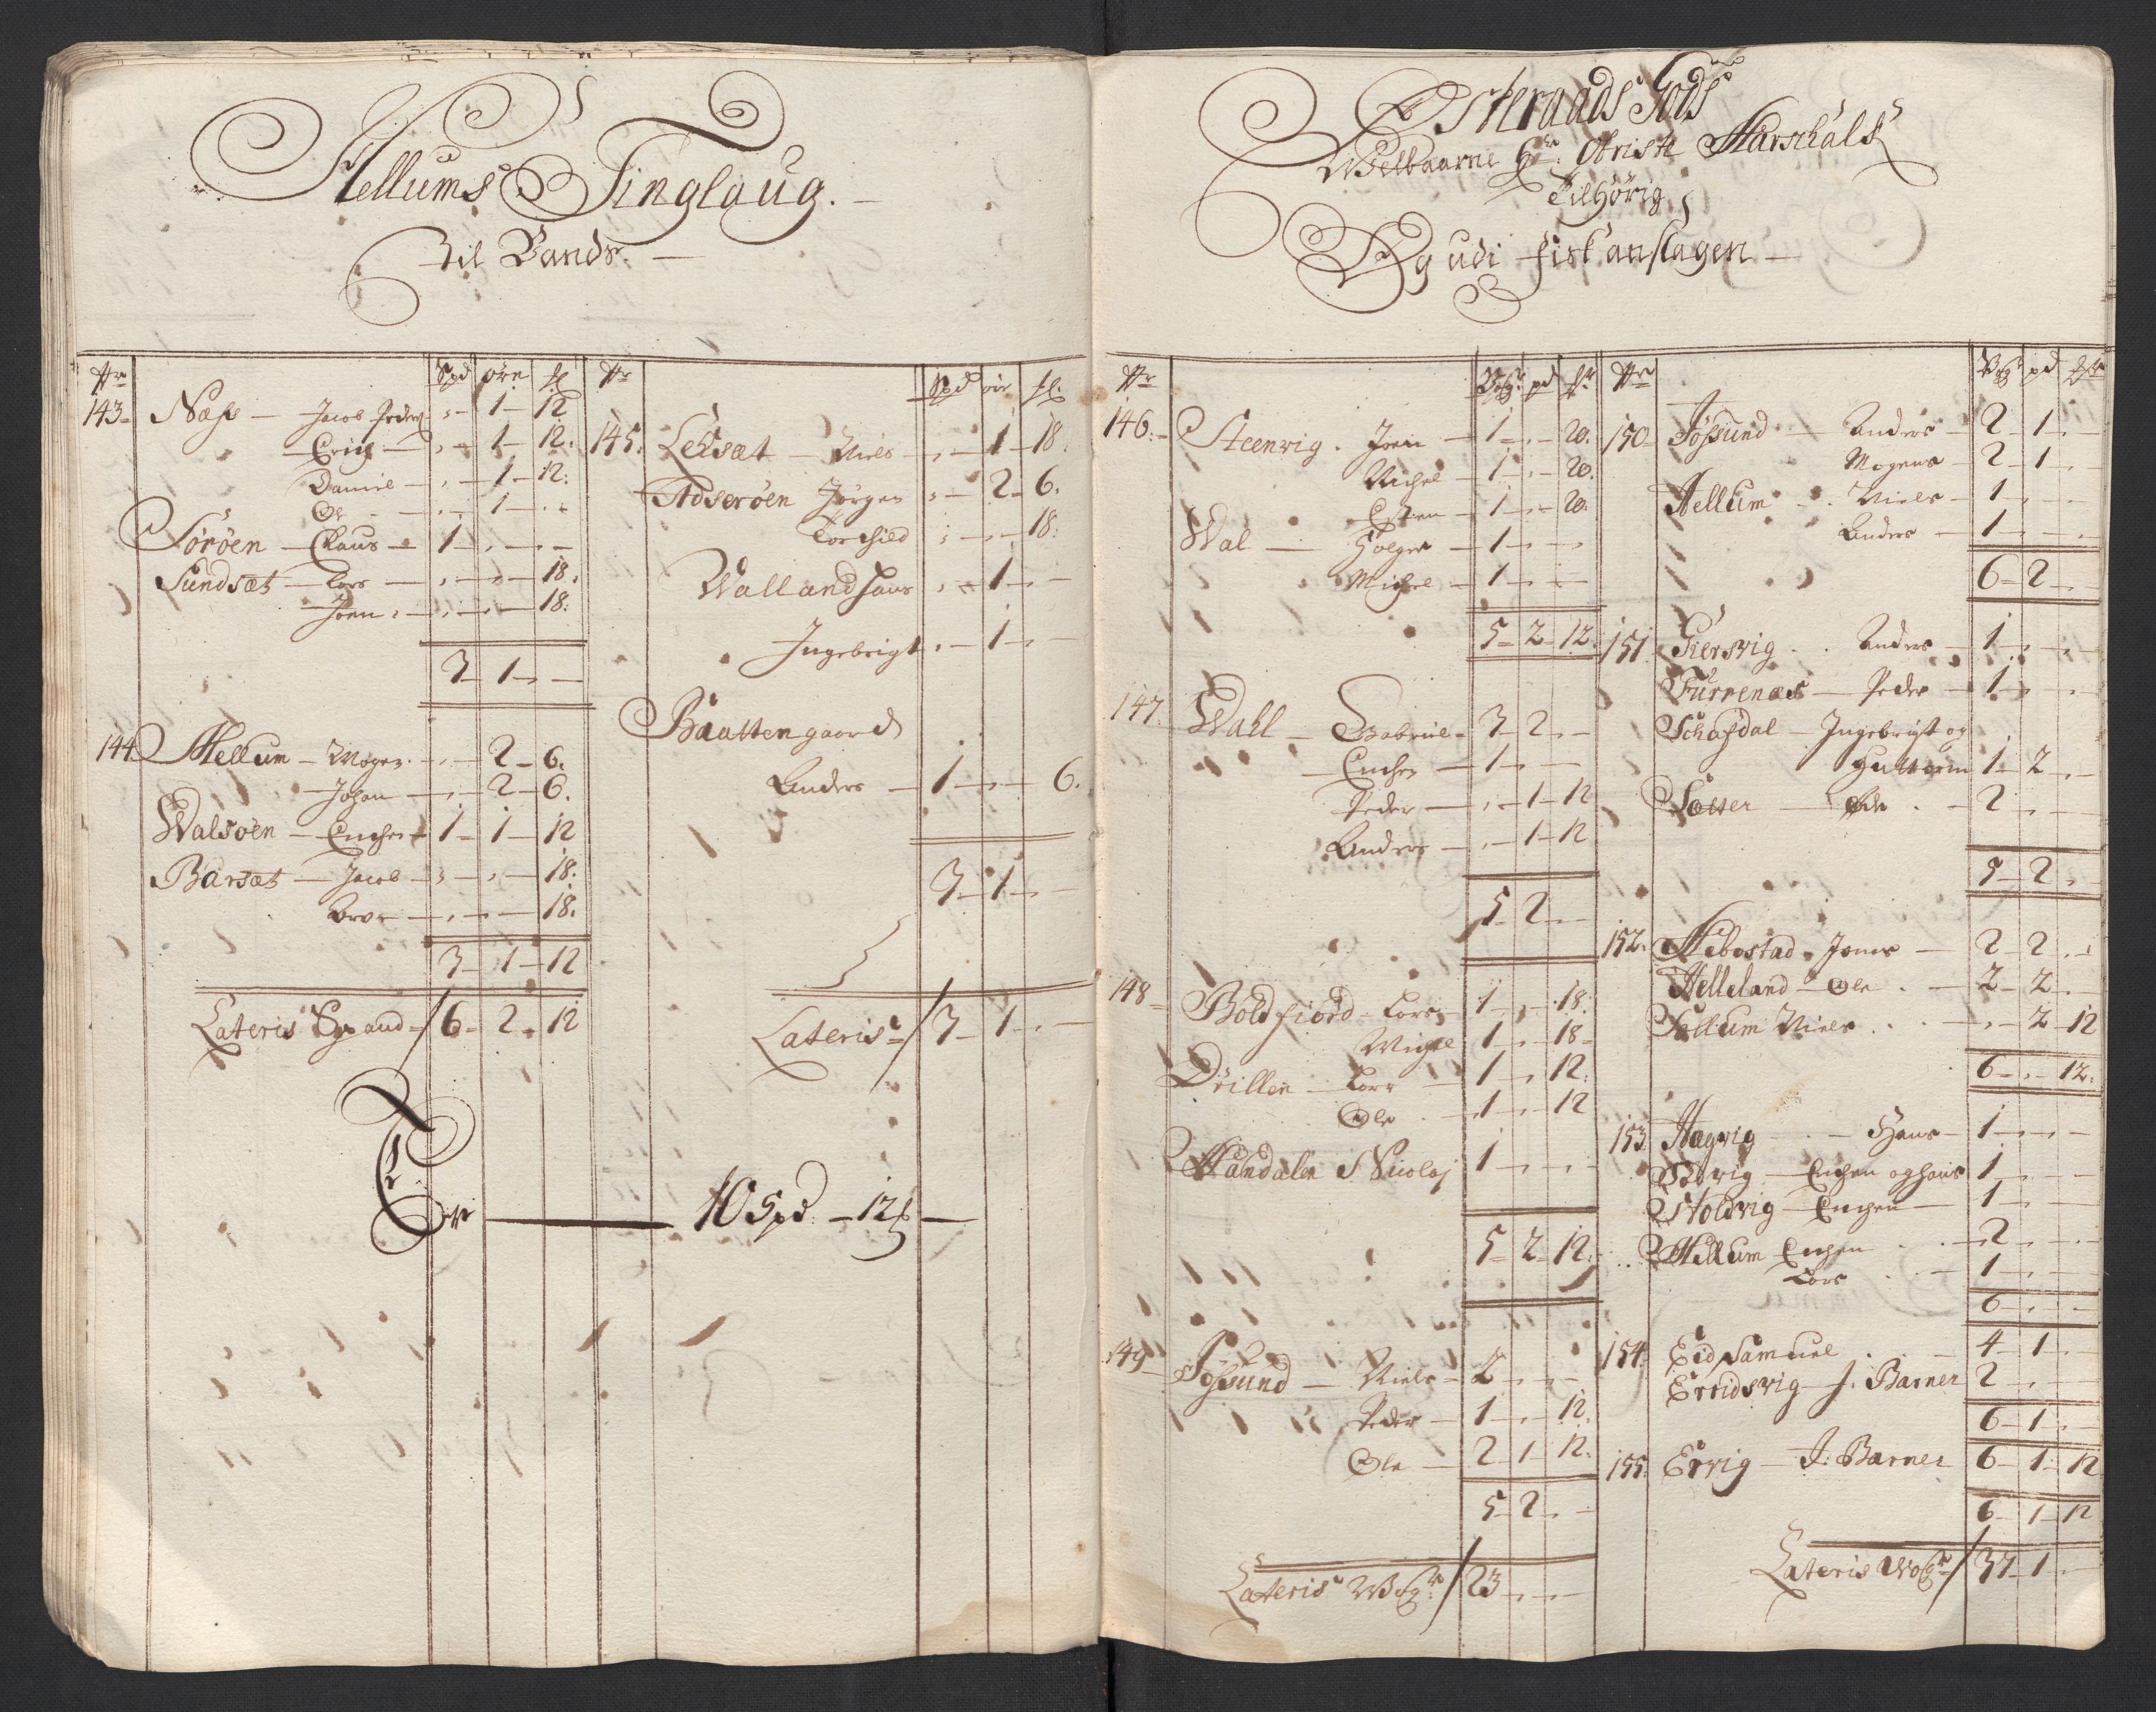 Hellums Tinglaug.
Til Lands.
Nr Spd øre sl
143 Næss — Jacob Peders: „ 1 12
Erich — „ 1 12.
Daniel — „ 1 12.
Ole — „ 1 „
Söröen — Claus — 1 „ „
Sundsæt — Lars — „ „ 18.
Joen „ „ 18.
3 1 „
144 Hellum — Mogens „ 2 6.
Johan — „ 2 6.
Walsöen — Encher 1 1 12
Barsæt — Jacob „ „ 18.
Arve — „ „ 18.
3 1 12
Lateris Spand 6 2 12
Nr Spd öre sl.
145. Lehsæt — Niels „ 1 18.
Adseröen Jörgen „ 2 6.
Torchild „ „ 18.
Walland Hans „ 1 „
Ingebrigt „ 1 „
Baattengaard
Anders — 1 „ 6.
3 1 „
Lateris 3 1 „
Er — 10 Spd — 12 sl —
Østeraads Gods
Welbaarne Hr: Obriste Marschalk
Tilhörig,
Og udi fiskanslagen
Nr Wog pd Mk
146. Steenvig. Joen 1 „ 20.
Michel 1 „ 20.
Esten 1 „ 20.
Wal — Holger 1 „ „
Michel 1 „ „
5 2 12.
147. Wall — Gabriel 3 2 „
Encher 1 „ „
Peder „ 1 12
Anders „ 1 12
5 2 „
148 Boldfiord — Lars 1 „ 18.
Michel 1 „ 18
Drillen — Lars 1 „ 12.
Ole 1 „ 12
Handalen Nicolaj 1 „ „
5 2 12.
149 Jössund — Niels 2 „ „
Peder 1 „ 12.
Ole — 2 1 12.
5 2 „
Lateris Wogr 23 „ „
Nr Wogr pd Mk
150 Jössund — Anders 2 1 „
Mogens 2 1 „
Hellum — Niels 1 „ „
Anders 1 „ „
6 2 „
151 Giersvig — Anders 1 „ „
Furrenæs — Peder 1 „ „
Schafdal — Ingebrigt og
Guttorm 1 2 „
Sætter — Ole 2 „ „
5 2 „
152. Hebostad. Jones 2 2 „
Helleland — Ole 2 2 „
Sellum Niels „ 2 12
6 „ 12.
153 Hagvig — Hans 1 „ „
Encher og Hans 1 „ „
Holdvig — Encher 1 „ „
Hellum Encher 2 „ „
Lars 1 „ „
6 „ „
154. Eid Samuel 4 1 „
Erridsvig J. Barner 2 „ „
6 1 „
155. Ervig — J. Barner 6 1 12
6 1 12
Lateris Wogr 37 1 „